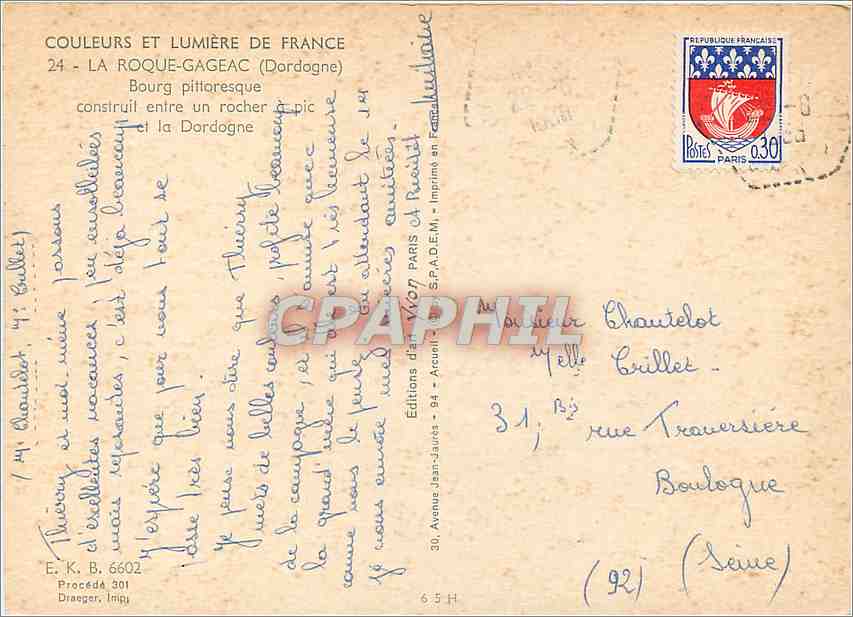 COULEURS ET LUMIÈRE DE FRANCE
24 - LA ROQUE-GAGEAC (Dordogne)
Bourg pittoresque
construit entre un rocher à pic
et la Dordogne
(Mr Chantelot, Melle Crillet)
Thierry et moi même passons
d'excellentes vacances, peu ensoleillées
mais reposantes, c'est déjà beaucoup
J'espère que pour vous tout se
passe très bien.
Je pense vous dire que Thierry
mets de belles couleurs, profite beaucoup
de la campagne, et s'amuse avec
la grand'mère qui est très heureuse
comme vous le pensez. En attendant le 14
je vous envoie mes sincères amitiés.
Éditions d'art Yvon PARIS
30, Avenue Jean-Jaurès - 94 - Arcueil - S.P.A.D.E.M. - Imprimé en France
REPUBLIQUE FRANÇAISE
POSTES 0,30
PARIS
Monsieur Chantelot
Melle Crillet -
31, Bis rue Traversière
Boulogne
(92) (Seine)
E. K. B. 6602
Procédé 301
Draeger, Imp.
6 5 H
CPAPHIL